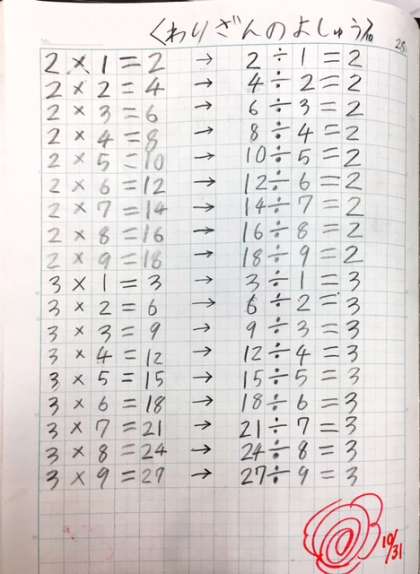 くわりざんのよしゅう
2 × 1 = 2 → 2 ÷ 1 = 2
2 × 2 = 4 → 4 ÷ 2 = 2
2 × 3 = 6 → 6 ÷ 3 = 2
2 × 4 = 8 → 8 ÷ 4 = 2
2 × 5 = 10 → 10 ÷ 5 = 2
2 × 6 = 12 → 12 ÷ 6 = 2
2 × 7 = 14 → 14 ÷ 7 = 2
2 × 8 = 16 → 16 ÷ 8 = 2
2 × 9 = 18 → 18 ÷ 9 = 2
3 × 1 = 3 → 3 ÷ 1 = 3
3 × 2 = 6 → 6 ÷ 2 = 3
3 × 3 = 9 → 9 ÷ 3 = 3
3 × 4 = 12 → 12 ÷ 4 = 3
3 × 5 = 15 → 15 ÷ 5 = 3
3 × 6 = 18 → 18 ÷ 6 = 3
3 × 7 = 21 → 21 ÷ 7 = 3
3 × 8 = 24 → 24 ÷ 8 = 3
3 × 9 = 27 → 27 ÷ 9 = 3
10/31